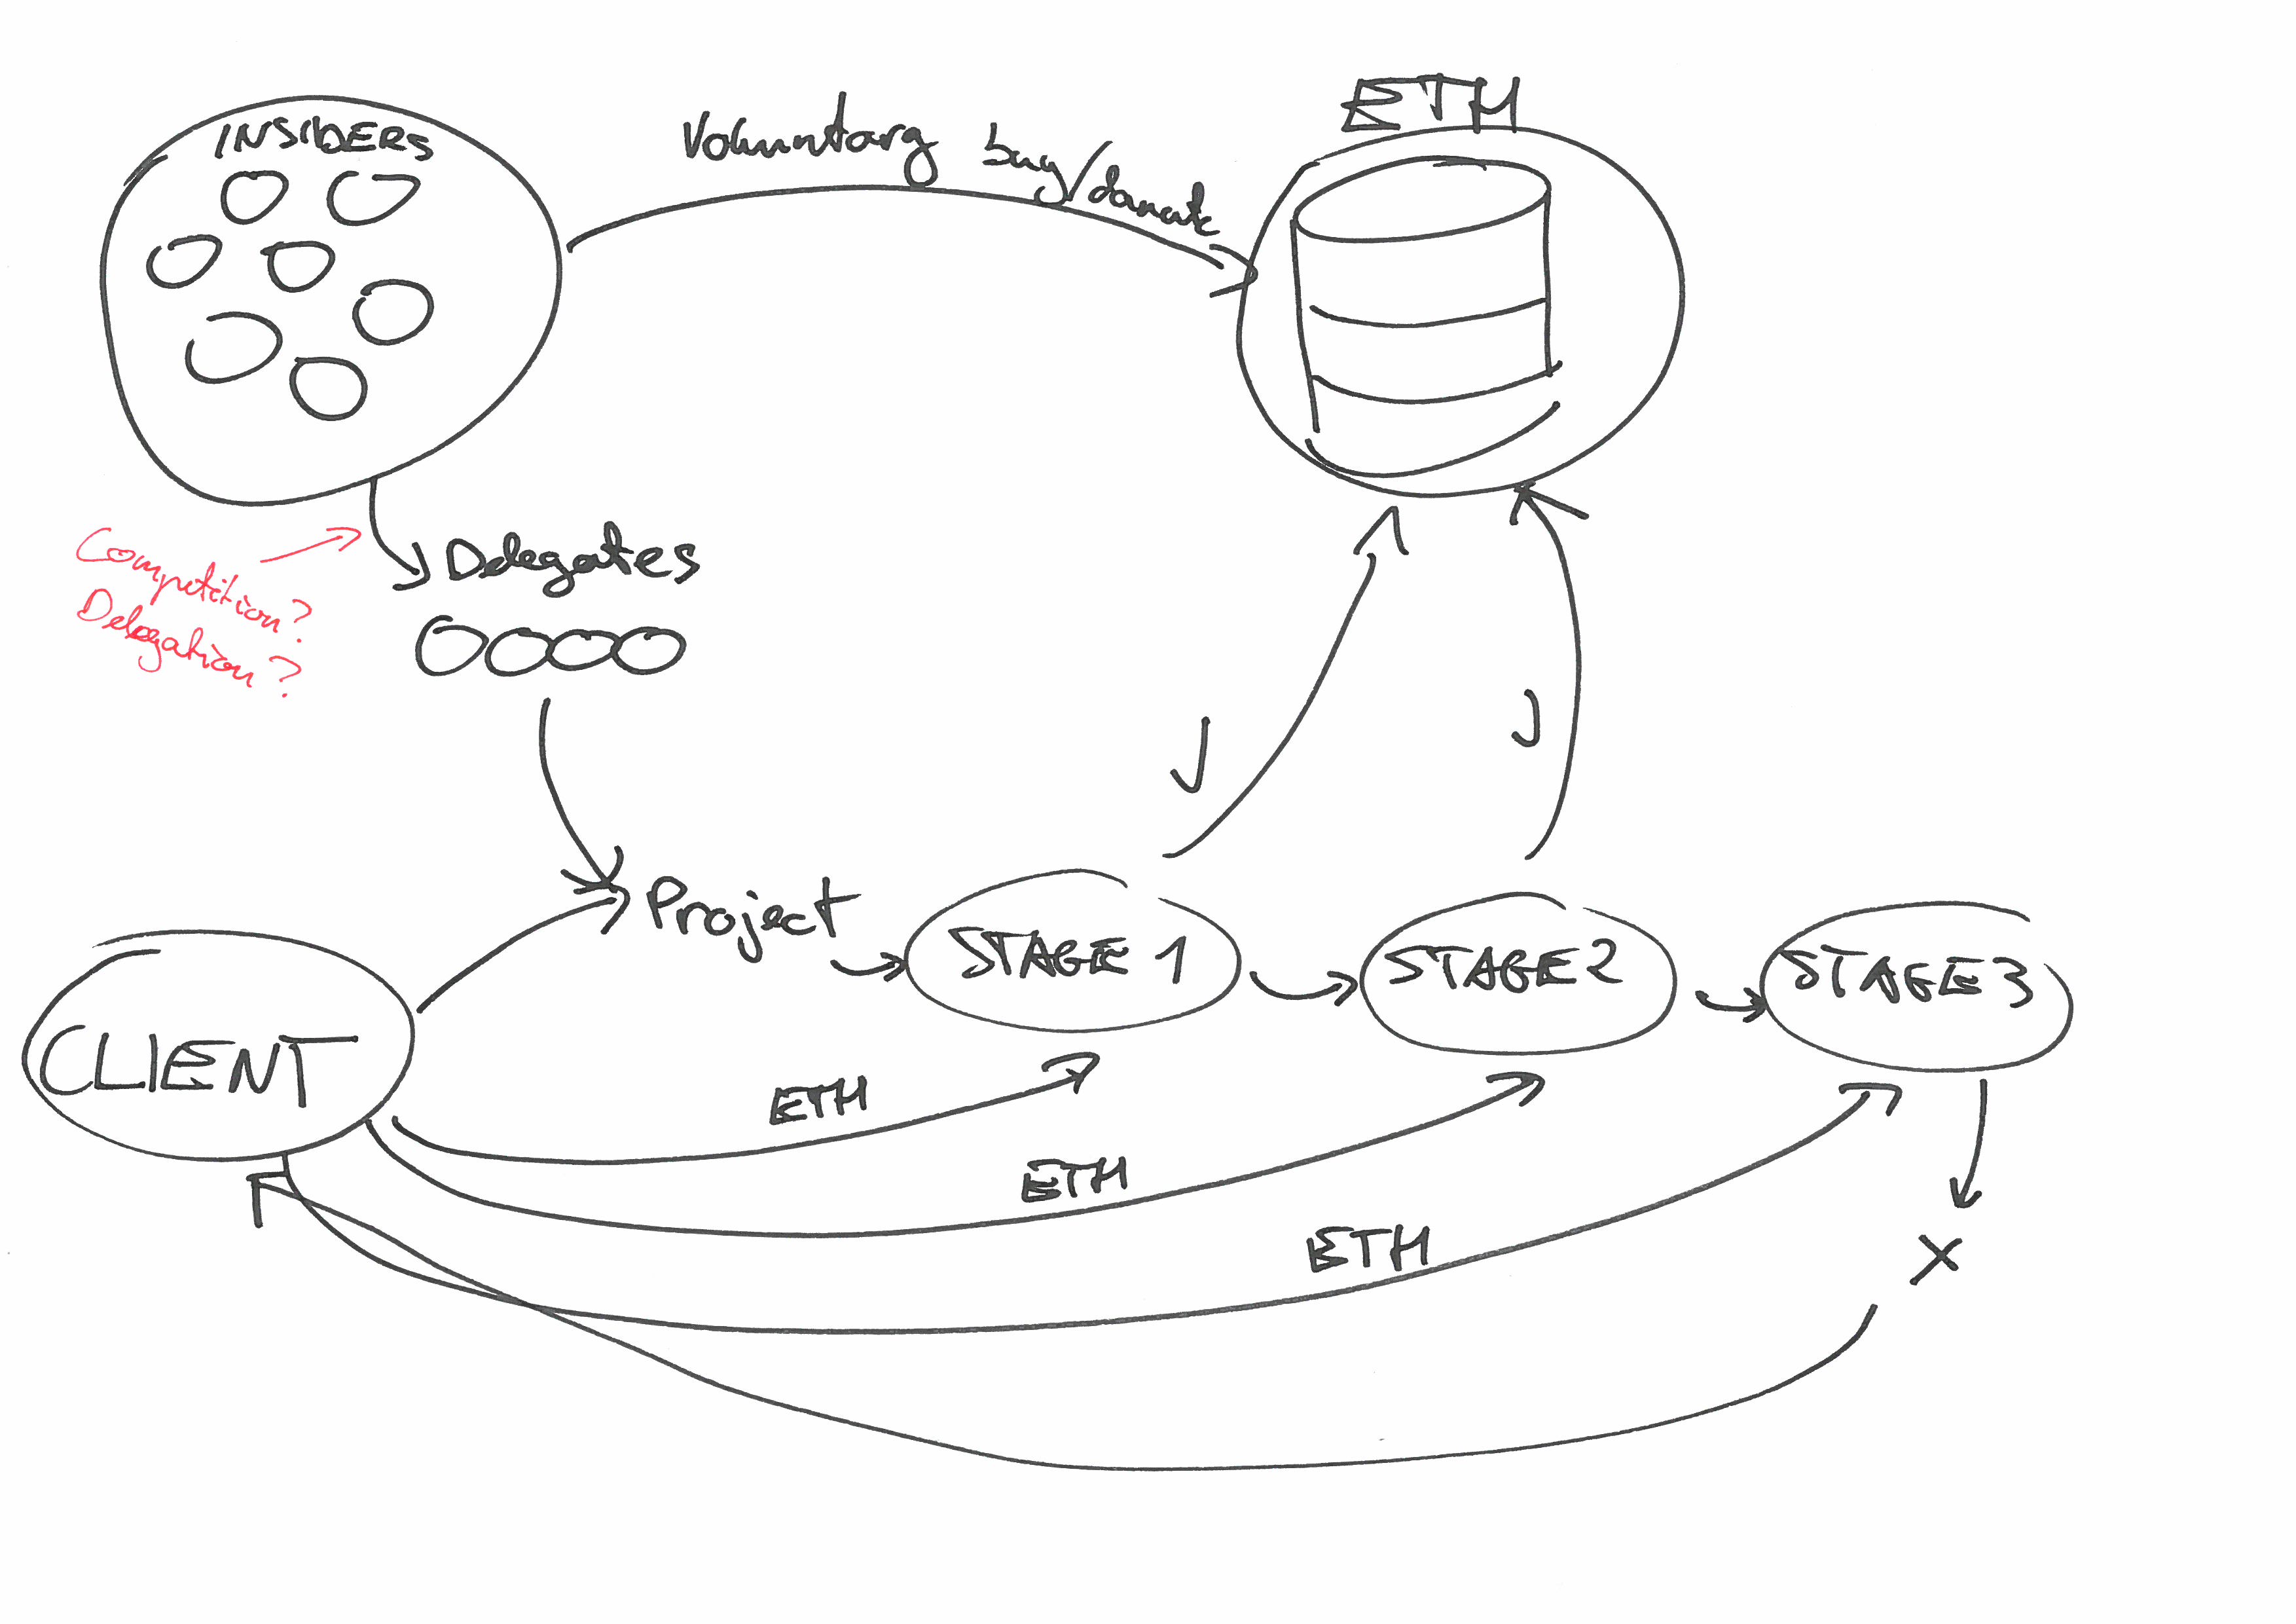 INSIDERS
Voluntary buy/donate
ETH
Competition?
Delegation?
Delegates
Project
STAGE 1
STAGE 2
STAGE 3
CLIENT
ETH
ETH
ETH
X